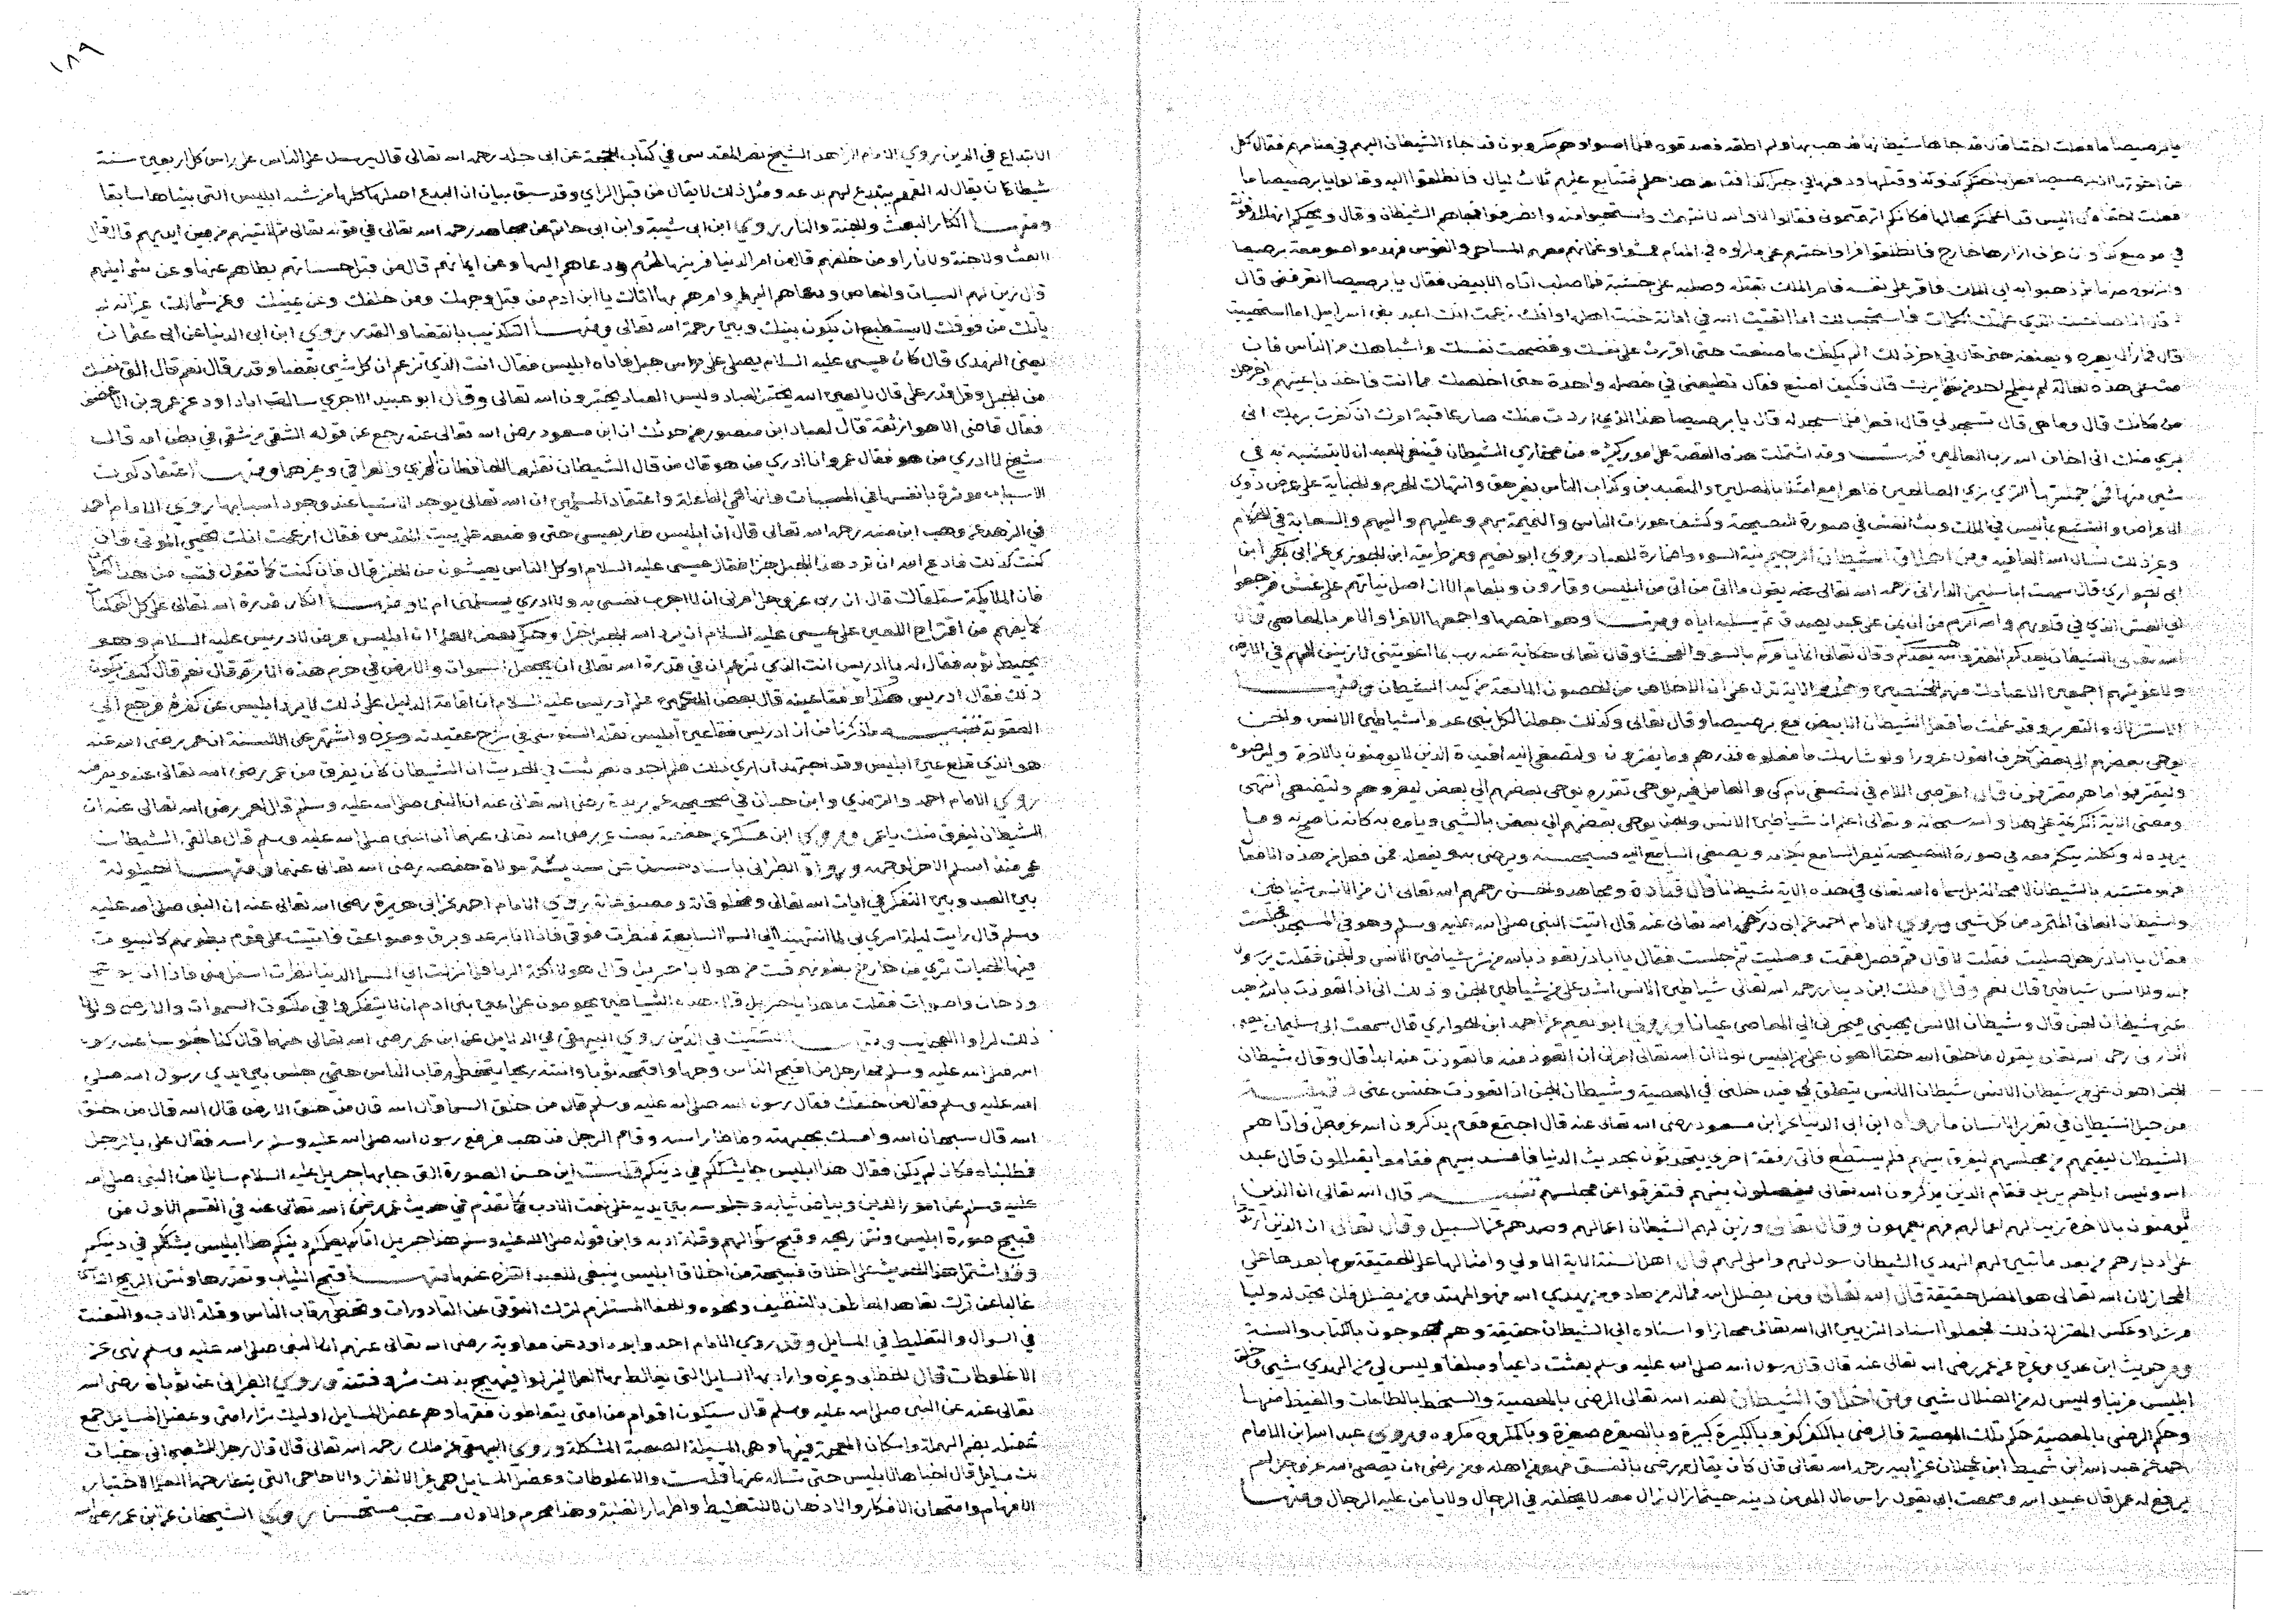 يا برصيصا ما فعلت اختنا قال قد جاها شيطانها فذهب بها ولم اطقه فصدقوه فلما امسوا وهم مكروبون قد جاء الشيطان اليهم في منامهم فقال كل
عن اخوتها ان برصيصا فعل باختكم كذا وكذا وقتلها ودفنها في جبل كذا فقال هذا حلم فتتابع عليهم ثلاث ليال فانطلقوا اليه وقالوا يا برصيصا ما
فعلت اختنا قال اليس قد اعلمتكم بحالها فكانكم اتهمتموني فقالوا لا والله لا نتهمك واستحيوا منه وانصرفوا فجاهم الشيطان وقال ويحكم انها لمدفونة
في موضع كذا وان طرف ازارها خارج فانطلقوا فراوا اختهم على ما راوه في المنام فمشوا وغلمانهم معهم المساحي والفوس فهدموا صومعة برصيصا
وانزلوه منها ثم ذهبوا به الى الملك فاقر على نفسه فامر الملك بقتله وصلبه على خشبة فلما صلب اتاه الابيض فقال يا برصيصا اتعرفني قال
لا قال انا صاحبك الذي علمتك الكلمات فاستجيب لك اما اتقيت الله في امانة خنت اهلها وانك زعمت انك اعبد بني اسراييل اما استحييت
قال فما زال يعيره ويعنفه حتى قال في اخر ذلك الم يكفك ما صنعت حتى اقررت على نفسك وفضحت نفسك واشباهك من الناس فان
مت على هذه الحالة لم يفلح احد من نظرايك قال فكيف اصنع فقال تطيعني في خصلة واحدة حتى اخلصك مما انت فاخذ باعينهم واخرجك
من مكانك قال وما هي قال تسجد لي قال افعل فسجد له قال يا برصيصا هذا الذي اردت منك صار عاقبة امرك ان كفرت بربك اني
بري منك اني اخاف الله رب العالمين وقد اشتملت هذه القصة على امور كثيرة من مخازي الشيطان فينبغي للعبد ان لا يتشبه به في
شي منها فمن جملتها التزي بزي الصالحين ظاهرا مع
الاعراض والتشنيع بالتلبيس في الملك وبث الغش في صورة النصيحة وكشف عورات الناس والنميمة بهم وعليهم واليهم والسعاية في الحكام
وغير ذلك نسال الله العافية ومن اخلاق الشيطان الرجيم نية السوء واضمارة للعباد روى ابو نعيم ومن طريقه ابن الجوزي عن ابي بكر ابن
ابي الحواري قال سمعت ابا سليمن الداراني رحمه الله تعالى عنه يقول ما اتى من اتى من ابليس وقارون وبلعام الا ان اصل نياتهم على غش فرجعوا
الى الغش الذي في قلوبهم والله اكرم من ان يمن على عبد بصدق ثم يسلبه اياه ومنها وهو اخصها واجمعها الاغرا والامر بالمعاصي قال
الله تعالى الشيطان يعدكم الفقر والله يعدكم وقال تعالى انما يامركم بالسو والفحشا وقال تعالى حكاية عنه رب بما اغويتني لازينن لهم في الارض
ولاغوينهم اجمعين الا عبادك منهم المخلصين وهذه الاية تدل على ان الاخلاص من الحصون المانعة من كيد الشيطان ومنها
الاستزلال والتغرير وقد علمت ما فعل الشيطان الابيض مع برصيصا وقال تعالى وكذلك جعلنا لكل نبي عدوا شياطين الانس والجن
يوحي بعضهم الى بعض زخرف القول غرورا ولو شا ربك ما فعلوه فذرهم وما يفترون ولتصغى اليه افيدة الذين لا يومنون بالاخرة وليرضوه
وليقترفوا ما هم مقترفون قال القرطبي اللام في لتصغى لام كي والعامل فيه يوحي تقديره يوحي بعضهم الى بعض ليغروهم ولتصغى انتهى
ومعنى الاية الكريمة على هذا والله سبحانه وتعالى اعلم ان شياطين الانس والجن يوحي بعضهم الى بعض بالشي ويامره به كانه ناصح له وما
يريده له ولكنه يتكلم معه في صورة النصيحة ليغر السامع بكلامه ويصغي السامع اليه فيستحسنه ويرضى به ويفعله فمن فعل من هذه الافعال
فهو متشبه بالشيطان لا محالة بل سماه الله تعالى في هذه الاية شيطانا قال قتادة ومجاهد والحسن رحمهم الله تعالى ان من الانس شياطين
والشيطان العاتي المتمرد من كل شي وروى الامام احمد عن ابي ذر رضي الله تعالى عنه قال اتيت النبي صلى الله عليه وسلم وهو في المسجد فجلست
فقال يا ابا ذر هل صليت فقلت لا قال قم فصل فقمت وصليت ثم جلست فقال يا ابا ذر تعوذ بالله من شر شياطين الانس والجن فقلت يا رسول
الله وللانس شياطين قال نعم وقال ملك ابن دينار رحمه الله تعالى شياطين الانس اشد علي من شياطين الجن وذلك اني اذا تعوذت بالله ذهب
عني شيطان الجن قال وشيطان الانس يجيني فيجرني الى المعاصي عيانا وروى ابو نعيم عن احمد ابن الحواري قال سمعت ابا سليمان يعني
الداراني رحمه الله تعالى يقول ما خلق الله خلقا اهون علي من ابليس لولا ان الله تعالى امرني ان اتعوذ منه ما تعوذت منه ابدا قال وقال شيطان
الجن اهون علي من شيطان الانس شيطان الانس يتعلق بي فيدخلني في المعصية وشيطان الجن اذا تعوذت خنس عني
من حيل الشيطان في تغرير الانسان ما رواه ابن ابي الدنيا عن ابن مسعود رضي الله تعالى عنه قال اجتمع قوم يذكرون الله عز وجل فاتاهم
الشيطان ليقيمهم من مجلسهم ليفرق بينهم فلم يستطع فاتى رفقة اخرى يتحدثون بحديث الدنيا فافسد بينهم فقاموا يقتتلون قال عبد
الله وليس اياهم يريد فقام الذين يذكرون الله تعالى يفصلون بينهم فتفرقوا عن مجلسهم تنبيه قال الله تعالى ان الذين لا
يومنون بالاخرة زينا لهم اعمالهم فهم يعمهون وقال تعالى وزين لهم الشيطان اعمالهم وصدهم عن السبيل وقال تعالى ان الذين ارتدوا
على ادبارهم من بعد ما تبين لهم الهدى الشيطان سول لهم واملى لهم قال اهل السنة الاية الاولى وامثالها على الحقيقة وما بعدها على
المجاز لان الله تعالى هو المضل حقيقة قال الله تعالى ومن يضلل الله فما له من هاد ومن يهدي الله فهو المهتد ومن يضلل فلن تجد له وليا
مرشدا وعكس المعتزلة ذلك فجعلوا اسناد التزيين الى الله تعالى مجازا واسناده الى الشيطان حقيقة وهم محجوجون بالكتاب والسنة
وحديث ابن عدي وغيره عن عمر رضي الله تعالى عنه قال قال رسول الله صلى الله عليه وسلم بعثت داعيا ومبلغا وليس لي من الهدى شي وخلق
ابليس مزينا وليس له من الضلال شي ومن اخلاق الشيطان لعنه الله تعالى الرضى بالمعصية والسخط بالطاعات والغيظ منها
وحكم الرضى بالمعصية حكم تلك المعصية فالرضى بالكفر كفر وبالكبيرة كبيرة وبالصغيرة صغيرة وبالمكروه مكروه وروى عبد الله ابن الامام
احمد عن عبد الله ابن شميط ابن عجلان عن ابيه رحمه الله تعالى قال كان يقال من رضي بالفسق فهو من اهله ومن رضي ان يعصى الله عز وجل لم
يرفع له عمل قال عبد الله وسمعت ابي يقول راس مال المومن دينه حيثما زال زال معه لا يخلفه في الرجال ولا يامن عليه الرجال ومنها
١٨٩
الابتداع في الدين روى الامام الزاهد الشيخ نصر المقدسي في كتاب الحجة عن ابي رحمه الله تعالى قال يرسل على الناس على راس كل اربعين سنة
شيطانا يقال له القمقم يبتدع لهم بدعة ومثل ذلك لا يقال من قبل الراي وقد سبق بيان ان البدع اصلها كلها من شبه ابليس التي بيناها سابقا
ومنها انكار البعث والجنة والنار روى ابن ابي شيبة وابن ابي حاتم عن مجاهد رحمه الله تعالى في قوله تعالى ثم لاتينهم من بين ايديهم قال قال
لا بعث ولا جنة ولا نار ومن خلفهم قال من امر الدنيا فزينها لهم ودعاهم اليها وعن ايمانهم قال من قبل حسناتهم بطاهم عنها وعن شمايلهم
قال زين لهم السيات والمعاصي ودعاهم اليها وامرهم بها اتاك يا ابن ادم من قبل وجهك ومن خلفك وعن يمينك وعن شمالك غير انه لم
ياتك من فوقك لا يستطيع ان يكون بينك وبين رحمة الله تعالى ومنها التكذيب بالقضا والقدر روى ابن ابي الدنيا عن ابي عثمان
يعني النهدي قال كان عيسى عليه السلام يصلي على راس جبل فاتاه ابليس فقال انت الذي تزعم ان كل شي بقضا وقدر قال نعم قال الق نفسك
من الجبل وقل قدر علي قال يا لعين الله يختبر العباد وليس العباد يختبرون الله تعالى وقال ابو عبيد الاجري سالت ابا داود عن عمرو بن الاغضف
فقال قاضي الاهواز ثقة قال لعباد ابن منصور من حدثك ان ابن مسعود رضي الله تعالى عنه رجع عن قوله الشقي من شقي في بطن امه قال
شيخ لا ادري من هو فقال عمرو انا ادري من هو قال من قال الشيطان نقله الحافظان المزي والعراقي وغيرهما ومنها اعتقاد كون
الاسباب موثرة بانفسها في المسببات وانها هي الفاعلة واعتقاد المسلمين ان الله تعالى يوجد الاشيا عند وجود اسبابها روى الامام احمد
في الزهد عن وهب ابن منبه رحمه الله تعالى قال ان ابليس طار بعيسى حتى وضعه على بيت المقدس فقال ازعمت انك تحيي الموتى فان
كنت كذلك فادع الله ان يرد هذا الجبل خبزا فقال عيسى عليه السلام اوكل الناس يعيشون من الخبز قال فان كنت كما تقول فثب من هذا المكان
فان الملايكة ستلقاك قال ان ربي عز وجل امرني ان لا اجرب نفسي به ولا ادري يسلمني ام لا ومنها انكار قدرة الله تعالى على كل الممكنات
كما يفهم من اقتراح اللعين على عيسى عليه السلام ان يرد الله الجبل خبزا وحكى بعض العلما ان ابليس عرض لادريس عليه السلام وهو
يخيط ثوبه فقال له يا ادريس انت الذي تزعم ان في قدرة الله تعالى ان يجعل السموات والارض في خرم هذه الابرة قال نعم قال كيف يكون
ذلك فقال ادريس هكذا وفقا عينه قال بعض المتكلمين علم ادريس عليه السلام ان اقامة الدليل على ذلك لا يرد ابليس عن كفره فرجع الى
العقوبة تنبيه ما ذكرنا من ان ادريس فقا عين ابليس نقله السنوسي في شرح عقيدته وغيره واشتهر على الالسنة ان عمر رضي الله عنه
هو الذي قلع عين ابليس وقد اجتهدت ان ارى ذلك فلم اجده نعم ثبت في الحديث ان الشيطان كان يفرق من عمر رضي الله تعالى عنه ويفر منه
روى الامام احمد والترمذي وابن حبان في صحيحه عن بريدة رضي الله تعالى عنه ان النبي صلى الله عليه وسلم قال لعمر رضي الله تعالى عنه ان
الشيطان ليفرق منك يا عمر وروى ابن عساكر عن حفصة بنت عمر رضي الله تعالى عنهما ان النبي صلى الله عليه وسلم قال ما لقي الشيطان
عمر منذ اسلم الا خر لوجهه ورواه الطبراني باسناد حسن عن سديسة مولاة حفصة رضي الله تعالى عنها ومنها الحيلولة
بين العبد وبين التفكر في ايات الله تعالى ومخلوقاته ومصنوعاته روى الامام احمد عن ابي هريرة رضي الله تعالى عنه ان النبي صلى الله عليه
وسلم قال رايت ليلة اسري بي لما انتهينا الى السما السابعة فنظرت فوقي فاذا انا برعد وبرق وصواعق فاتيت على قوم بطونهم كالبيوت
فيها الحيات ترى من خارج بطونهم قلت من هولا يا جبريل قال هولا اكلة الربا فلما نزلت الى السما الدنيا نظرت اسفل مني فاذا انا برهج
ودخان واصوات فقلت ما هذا يا جبريل قال هذه الشياطين يحومون على اعين بني ادم ان لا يتفكروا في ملكوت السموات والارض ولولا
ذلك لراوا العجايب ومنها التشكيك في الدين روى البيهقي في الدلايل عن ابن عمر رضي الله تعالى عنهما قال كنا جلوسا عند رسول
الله صلى الله عليه وسلم فجا رجل من اقبح الناس وجها واقبحه ثوبا وانتنه ريحا يتخطى رقاب الناس حتى جلس بين يدي رسول الله صلى
الله عليه وسلم فقال من خلقك فقال رسول الله صلى الله عليه وسلم الله قال من خلق السما قال الله قال من خلق الارض قال الله قال من خلق
الله قال سبحان الله وامسك بجبهته وطاطا راسه وقام الرجل فذهب فرفع رسول الله صلى الله عليه وسلم راسه فقال علي بالرجل
فطلبناه فكان لم يكن فقال هذا ابليس جا يشككم في دينكم قلت اين حسن الصورة التي جا بها جبريل عليه السلام سايلا من النبي صلى الله
عليه وسلم عن امور الدين وبياض ثيابه وجلوسه بين يديه على نعت الادب كما تقدم في حديث عمر رضي الله تعالى عنه في القسم الاول من
قبيح صورة ابليس ونتن ريحه وقبح سوالهم وقلة ادبه واين قوله صلى الله عليه وسلم هذا جبريل اتاكم يعلمكم دينكم هذا ابليس يشككم في دينكم
وقد اشتمل هذا الحديث على اخلاق قبيحة من اخلاق ابليس ينبغي للعبد التنزه عنها منها قبح الثياب وتقذرها ونتن الريح الناشي
غالبا عن ترك تعاهد بالتنظيف ونحوه والجفا المستلزم لترك التوقي عن القاذورات وتخطي رقاب الناس وقلة الادب والتعنت
في السوال والتغليط في المسايل وقد روى الامام احمد وابو داود عن معاوية رضي الله تعالى عنهم ان النبي صلى الله عليه وسلم نهى عن
الاغلوطات قال الخطابي وغيره واراد بها المسايل التي يغالط بها العلما ليزلوا فيهيج بذلك شر وفتنة وروى الطبراني عن ثوبان رضي الله
تعالى عنه عن النبي صلى الله عليه وسلم قال سيكون اقوام من امتي يتعاطون فقهاوهم عضل المسايل اوليك شرار امتي وعضل المسايل جمع
عضلة بضم المهملة واسكان المعجمة فيها وهي المسيلة الصعبة المشكلة وروى البيهقي عن ملك رحمه الله تعالى قال قال رجل للشعبي اني خبات
لك مسايل قال اخباها لابليس حتى تساله عنها قلت والاغلوطات وعضل المسايل هي غير الالغاز والاحاجي التي يتطارحها العلما لاختبار
الافهام وامتحان الافكار والاذهان لا للتغليط واظهار الغلبة وهذا محرم والاول مستحب مستحسن روى الشيخان عن ابن عمر رضي الله